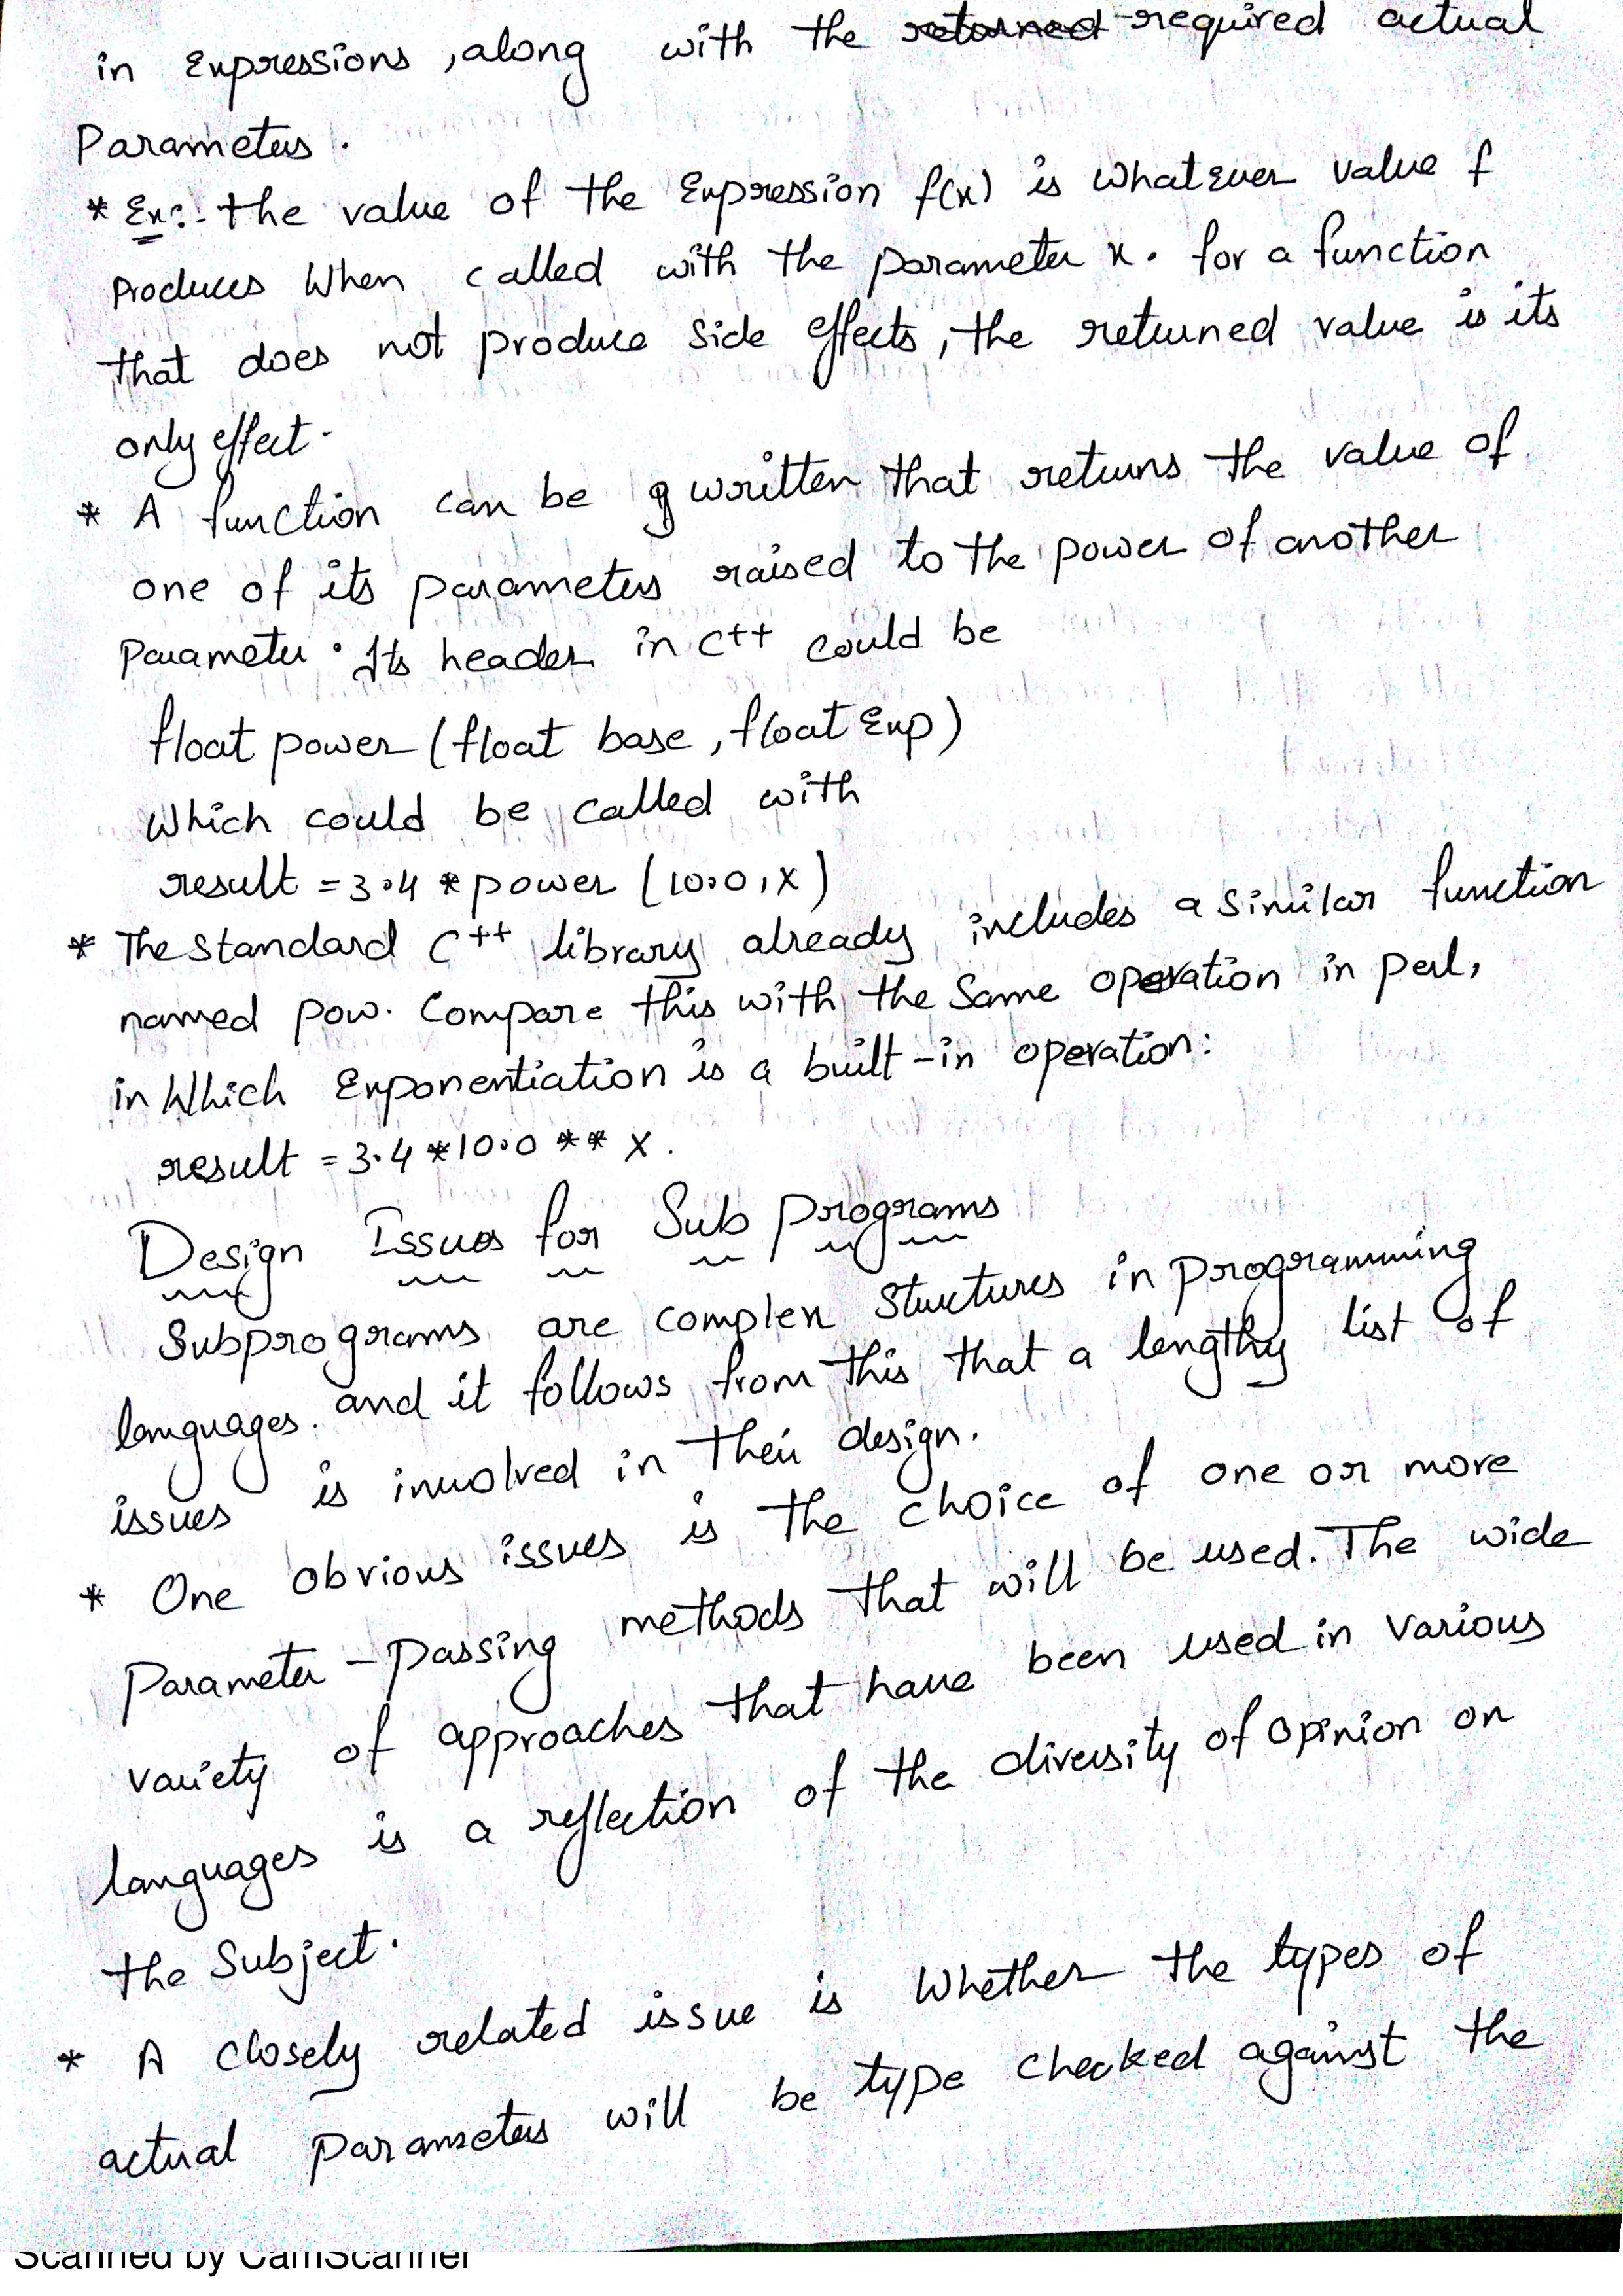 in Expressions, along with the returned required actual
Parameters.
* Ex:- the value of the Expression f(x) is whatever value f
Produces when called with the parameter x. for a function
that does not produce side effects, the returned value is its
only effect.
* A function can be written that returns the value of
one of its parameters raised to the power of another
parameter. Its header in C++ could be
float power (float base, float Exp)
Which could be called with
result = 3.4 * power (10.0, x)
* The standard C++ library already includes a similar function
named pow. Compare this with the same operation in perl,
in Which Exponentiation is a built-in operation:
result = 3.4 * 10.0 ** x.
Design Issues for Sub programs
Subprograms are complex structures in programming
languages. and it follows from this that a lengthy list of
issues is involved in their design.
* One obvious issues is the choice of one or more
Parameter-Passing methods that will be used. The wide
variety of approaches that have been used in various
languages is a reflection of the diversity of opinion on
the Subject.
* A closely related issue is whether the types of
actual parameters will be type checked against the
Scanned by CamScanner